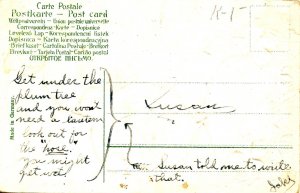 Carte Postale
Postkarte - Post card
Weltpostverein - Union postale universelle
Correspondenz-Karte - Dopisnice
Levelező Lap - Korespondenční lístek
Dopisnica - Karta korespondencyjna
Briefkaart - Cartolina Postale - Brefkort
Brevkort - Tarjeta Postal - Cartão postal
ОТКРЫТОЕ ПИСЬМО.
K-1
Made in Germany.
Get under the
plum tree
and you won't
need a lantern
look out for
the "hose"
you might
get wet.
Susan
Susan told me to write
that.